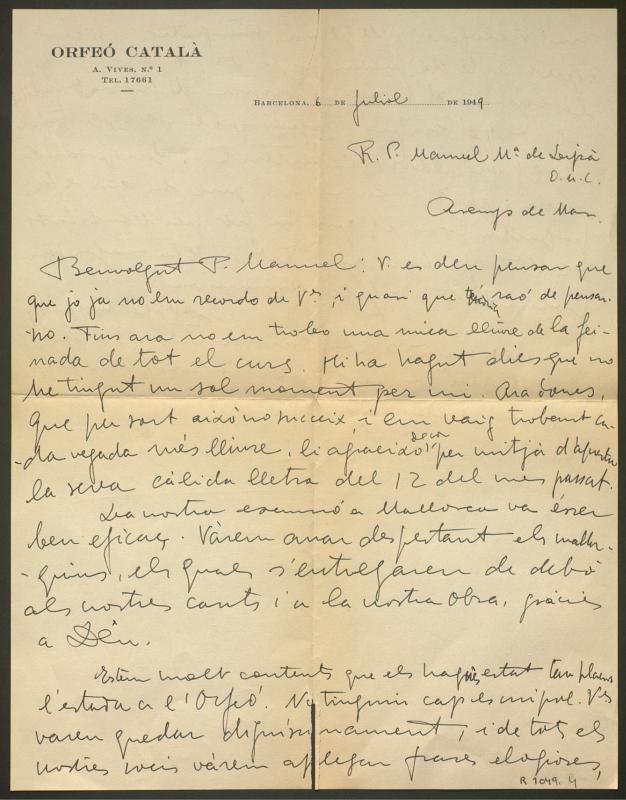 ORFEÓ CATALÀ
A. VIVES, N.º 1
TEL. 17661
BARCELONA, 6 DE Juliol DE 1949
R. P. Manuel Mª de
O. M. C.
Arenys de Mar.
Benvolgut P. Manuel: V. es deu pensar que
que jo ja no em recordo de Vè, i quasi que tindria raó de pensar-
ho. Fins ara no em trobo una mica lliure de la fei-
nada de tot el curs. Hi ha hagut dies que no
he tingut un sol moment per mi. Ara doncs,
que per sort això no succeix, i em vaig trobant ca-
da vegada més lliure, li agraeixo de cor per mitjà d'aquesta
la seva càlida lletra del 12 del mes passat.
La nostra excursió a Mallorca va ésser
ben eficaç. Vàrem anar despertant els mallor-
quins, els quals s'entregaren de debò
als nostres cants i a la nostra Obra, gràcies
a Déu.
Estem molt contents que els hagués estat tan plaent
l'estada a l'Orfeó. No tinguin cap escrúpol. Vès
varen quedar digníssimament, i de tots els
nostres socis vàrem aplegar frases elogioses,
R 1049. 4